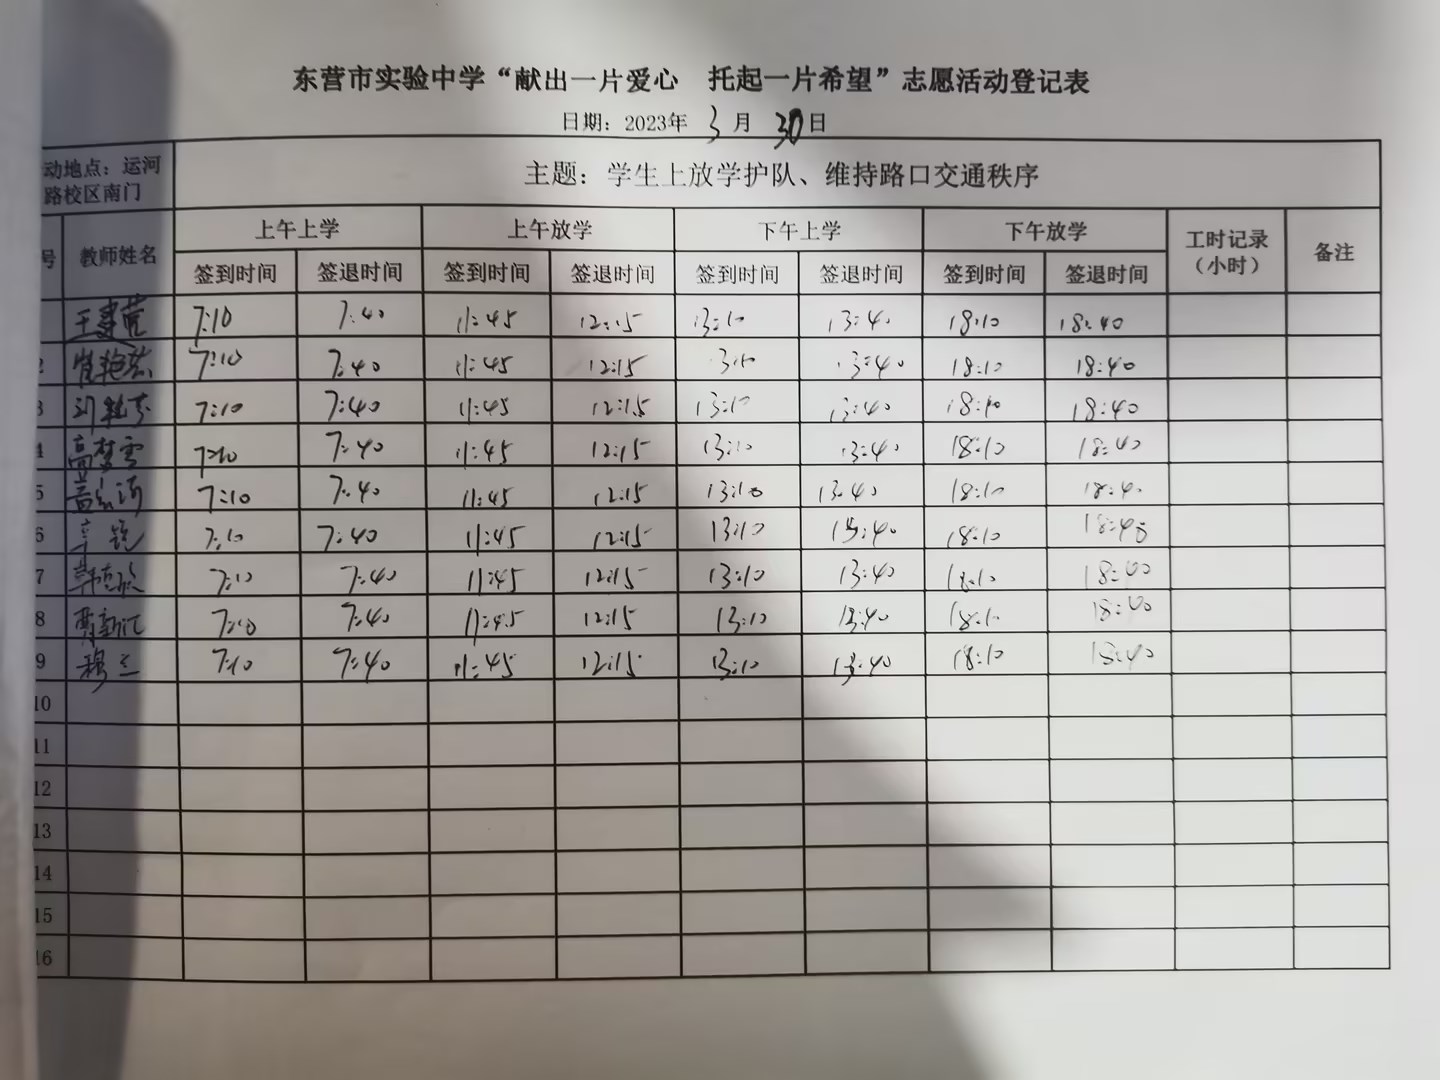 东营市实验中学“献出一片爱心 托起一片希望”志愿活动登记表
日期：2023年 3 月 30 日
动地点：运河 主题：学生上放学护队、维持路口交通秩序
路校区南门
号 教师姓名 上午上学 上午放学 下午上学 下午放学 工时记录（小时） 备注
签到时间 签退时间 签到时间 签退时间 签到时间 签退时间 签到时间 签退时间
7:10 7:40 11:45 12:15 13:10 13:40 18:10 18:40
2 7:10 7:40 11:45 12:15 13:10 13:40 18:10 18:40
3 7:10 7:40 11:45 12:15 13:10 13:40 18:10 18:40
4 高梦雪 7:10 7:40 11:45 12:15 13:10 13:40 18:10 18:40
5 7:10 7:40 11:45 12:15 13:10 13:40 18:10 18:40
6 7:10 7:40 11:45 12:15 13:10 13:40 18:10 18:40
7 7:10 7:40 11:45 12:15 13:10 13:40 18:10 18:40
8 7:10 7:40 11:45 12:15 13:10 13:40 18:10 18:40
9 7:10 7:40 11:45 12:15 13:10 13:40 18:10 18:40
10
11
12
13
14
15
16